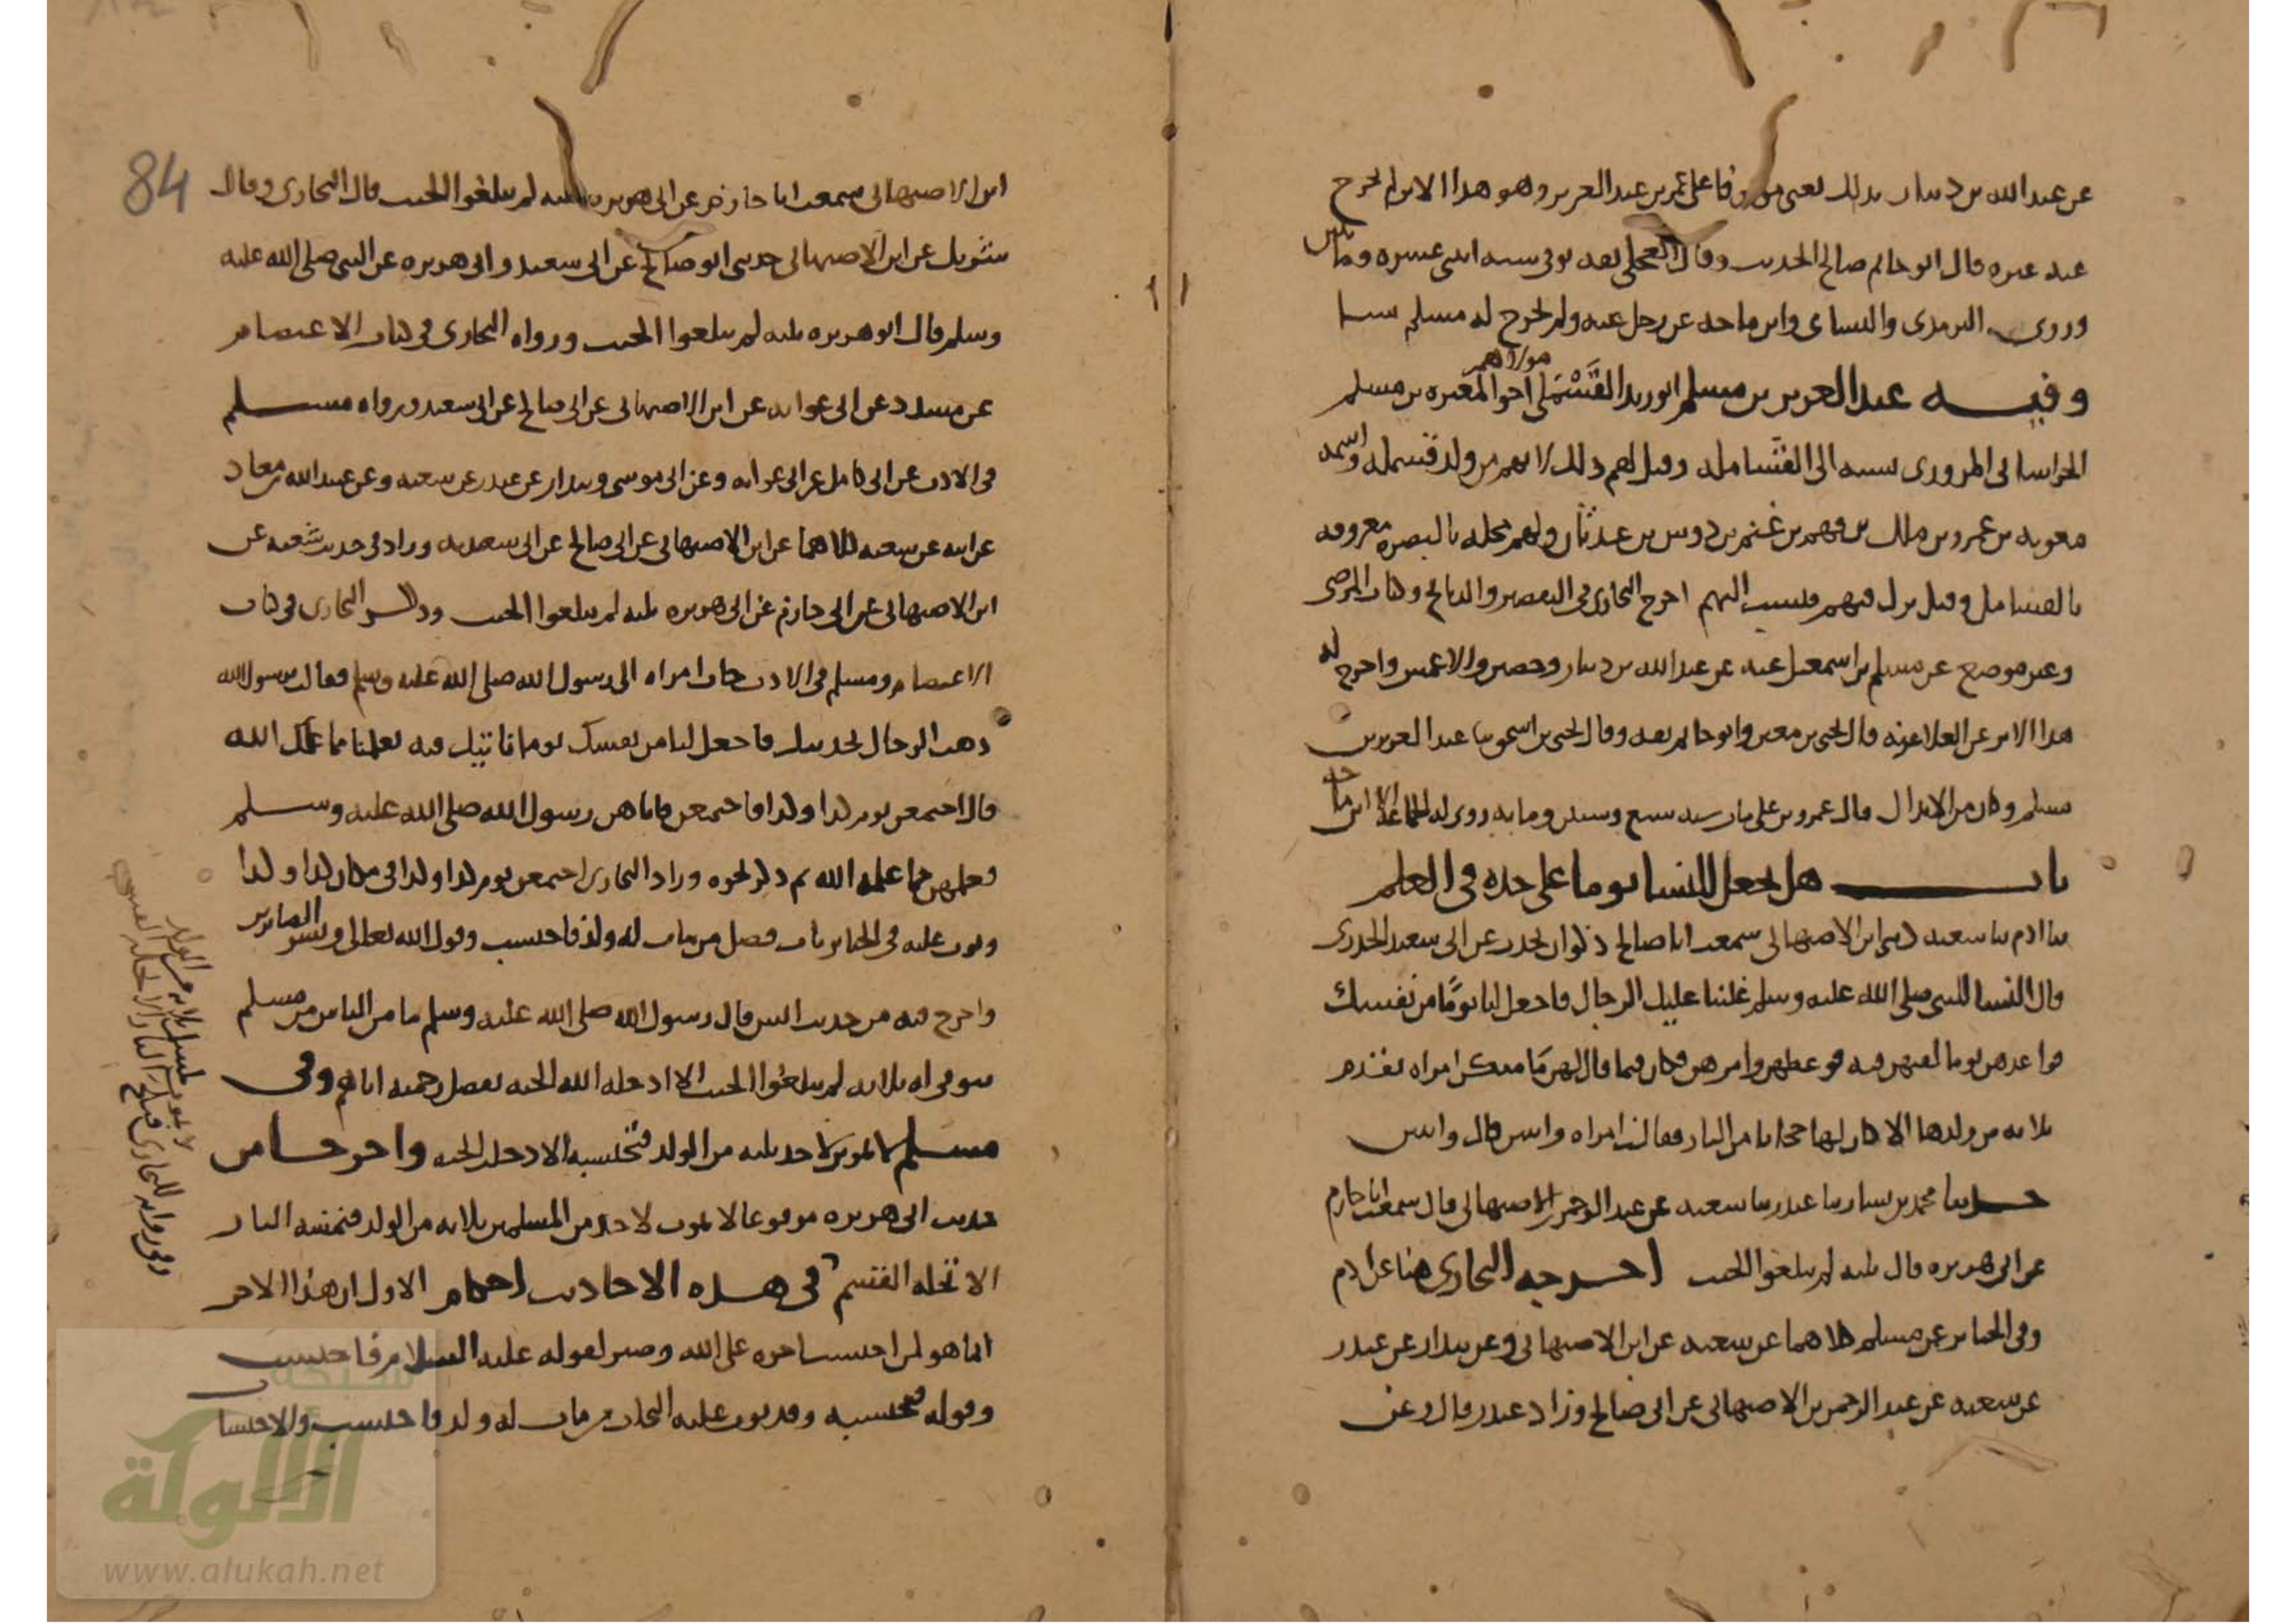 عن عبد الله بن دينار بذلك يعني موقوفا على عمر بن عبد العزيز وهو هذا الاثر لم يخرج
عنه غيره قال ابو حاتم صالح الحديث وقال العجلي ثقة توفي سنة اثنتي عشرة ومائتين
وروى الترمذي والنسائي وابن ماجه عن رجل عنه ولم يخرج له مسلم شيئا
وفيه عبد العزيز بن مسلم ابو زيد القَسْمَلي مولاهم اخو المغيرة بن مسلم
الخراساني المروزي نسبة الى القسامله وقيل لهم ذلك لانهم من ولد قسملة واسمه
معوية بن عمرو بن ملك بن فهم بن غنم بن دوس بن عدثان ولهم محلة بالبصرة معروفة
بالقسامل وقيل نزل فيهم فنسب اليهم اخرج البخاري في التعبير والذبائح وكتاب المرضى
وغير موضع عن مسلم بن اسمعيل عنه عن عبد الله بن دينار وحصين والاعمش واخرج له
هذا الاثر عن العلا عنه قال يحيى بن معين وابو حاتم ثقة وقال يحيى بن اسحق ثنا عبد العزيز بن
مسلم وكان من الابدال قال عمرو بن علي مات سنة سبع وستين ومائة روى له الجماعة الا ابن ماجه
باب هل يجعل للنسا يوما على حدة في العلم
ثنا ادم ثنا شعبة حدثني ابن الاصبهاني سمعت ابا صالح ذكوان يحدث عن ابي سعيد الخدري
قال النسا للنبي صلى الله عليه وسلم غلبنا عليك الرجال فاجعل لنا يوما من نفسك
فواعدهن يوما لقيهن فيه فوعظهن وامرهن فكان فيما قال لهن ما منكن امراة تقدم
ثلاثة من ولدها الا كان لها حجابا من النار فقالت امراة واثنين قال واثنين
حدثنا محمد بن بشار ثنا غندر ثنا شعبة عن عبد الرحمن بن الاصبهاني قال سمعت ابا حازم
عن ابي هريرة قال ثلثة لم يبلغوا الحنث اخرجه البخاري هنا عن ادم
وفي الجنائز عن مسلم كلاهما عن شعبة عن ابن الاصبهاني وعن بندار عن غندر
عن شعبة عن عبد الرحمن بن الاصبهاني عن ابي صالح وزاد غندر قال وعن
84
ابن الاصبهاني سمعت ابا حازم عن ابي هريرة ثلثة لم يبلغوا الحنث قال البخاري وقال
شريك عن ابن الاصبهاني حدثني ابو صالح عن ابي سعيد وابي هريرة عن النبي صلى الله عليه
وسلم قال ابو هريرة ثلثة لم يبلغوا الحنث ورواه البخاري في كتاب الاعتصام
عن مسدد عن ابي عوانة عن ابن الاصبهاني عن ابي صالح عن ابي سعيد ورواه مسلم
في الادب عن ابي كامل عن ابي عوانة وعن ابي موسى وبندار عن غندر عن شعبة وعن عبيد الله بن معاذ
عن ابيه عن شعبة كلاهما عن ابن الاصبهاني عن ابي صالح عن ابي سعيد به وزاد في حديث شعبة عن
ابن الاصبهاني عن ابي حازم عن ابي هريرة ثلثة لم يبلغوا الحنث وذكر البخاري في كتاب
الاعتصام ومسلم في الادب جات امراة الى رسول الله صلى الله عليه وسلم فقالت يرسول الله
ذهب الرجال بحديثك فاجعل لنا من نفسك يوما ناتيك فيه تعلمنا مما علمك الله
قال اجتمعن يوم كذا وكذا فاجتمعن فاتاهن رسول الله صلى الله عليه وسلم
فعلمهن مما علمه الله ثم ذكر نحوه وزاد البخاري اجتمعن يوم كذا وكذا في مكان كذا وكذا
وبوب عليه في الجنائز باب فضل من مات له ولد فاحتسب وقول الله تعالى وبشر الصابرين
واخرج فيه من حديث انس قال رسول الله صلى الله عليه وسلم ما من الناس من مسلم
يتوفى له ثلاثة لم يبلغوا الحنث الا ادخله الله الجنة بفضل رحمته اياهم وفي
مسلم لا يموت لاحداكن ثلثة من الولد فتحتسبه الا دخلت الجنة واخرجا من
حديث ابي هريرة مرفوعا لا يموت لاحد من المسلمين ثلاثة من الولد فتمسه النار
الا تحلة القسم في هذه الاحاديث احكام الاول ان هذا الاجر
انما هو لمن احتسب اجره على الله وصبر لقوله عليه السلام فاحتسب
وقوله فتحتسبه وقد بوب عليه البخاري من مات له ولد فاحتسب والاحتساب
وفي رواية للبخاري فيلج النار الا تحلة القسم
لا يموت لمسلم ثلاثة من الولد
شبكة
الألوكة
www.alukah.net